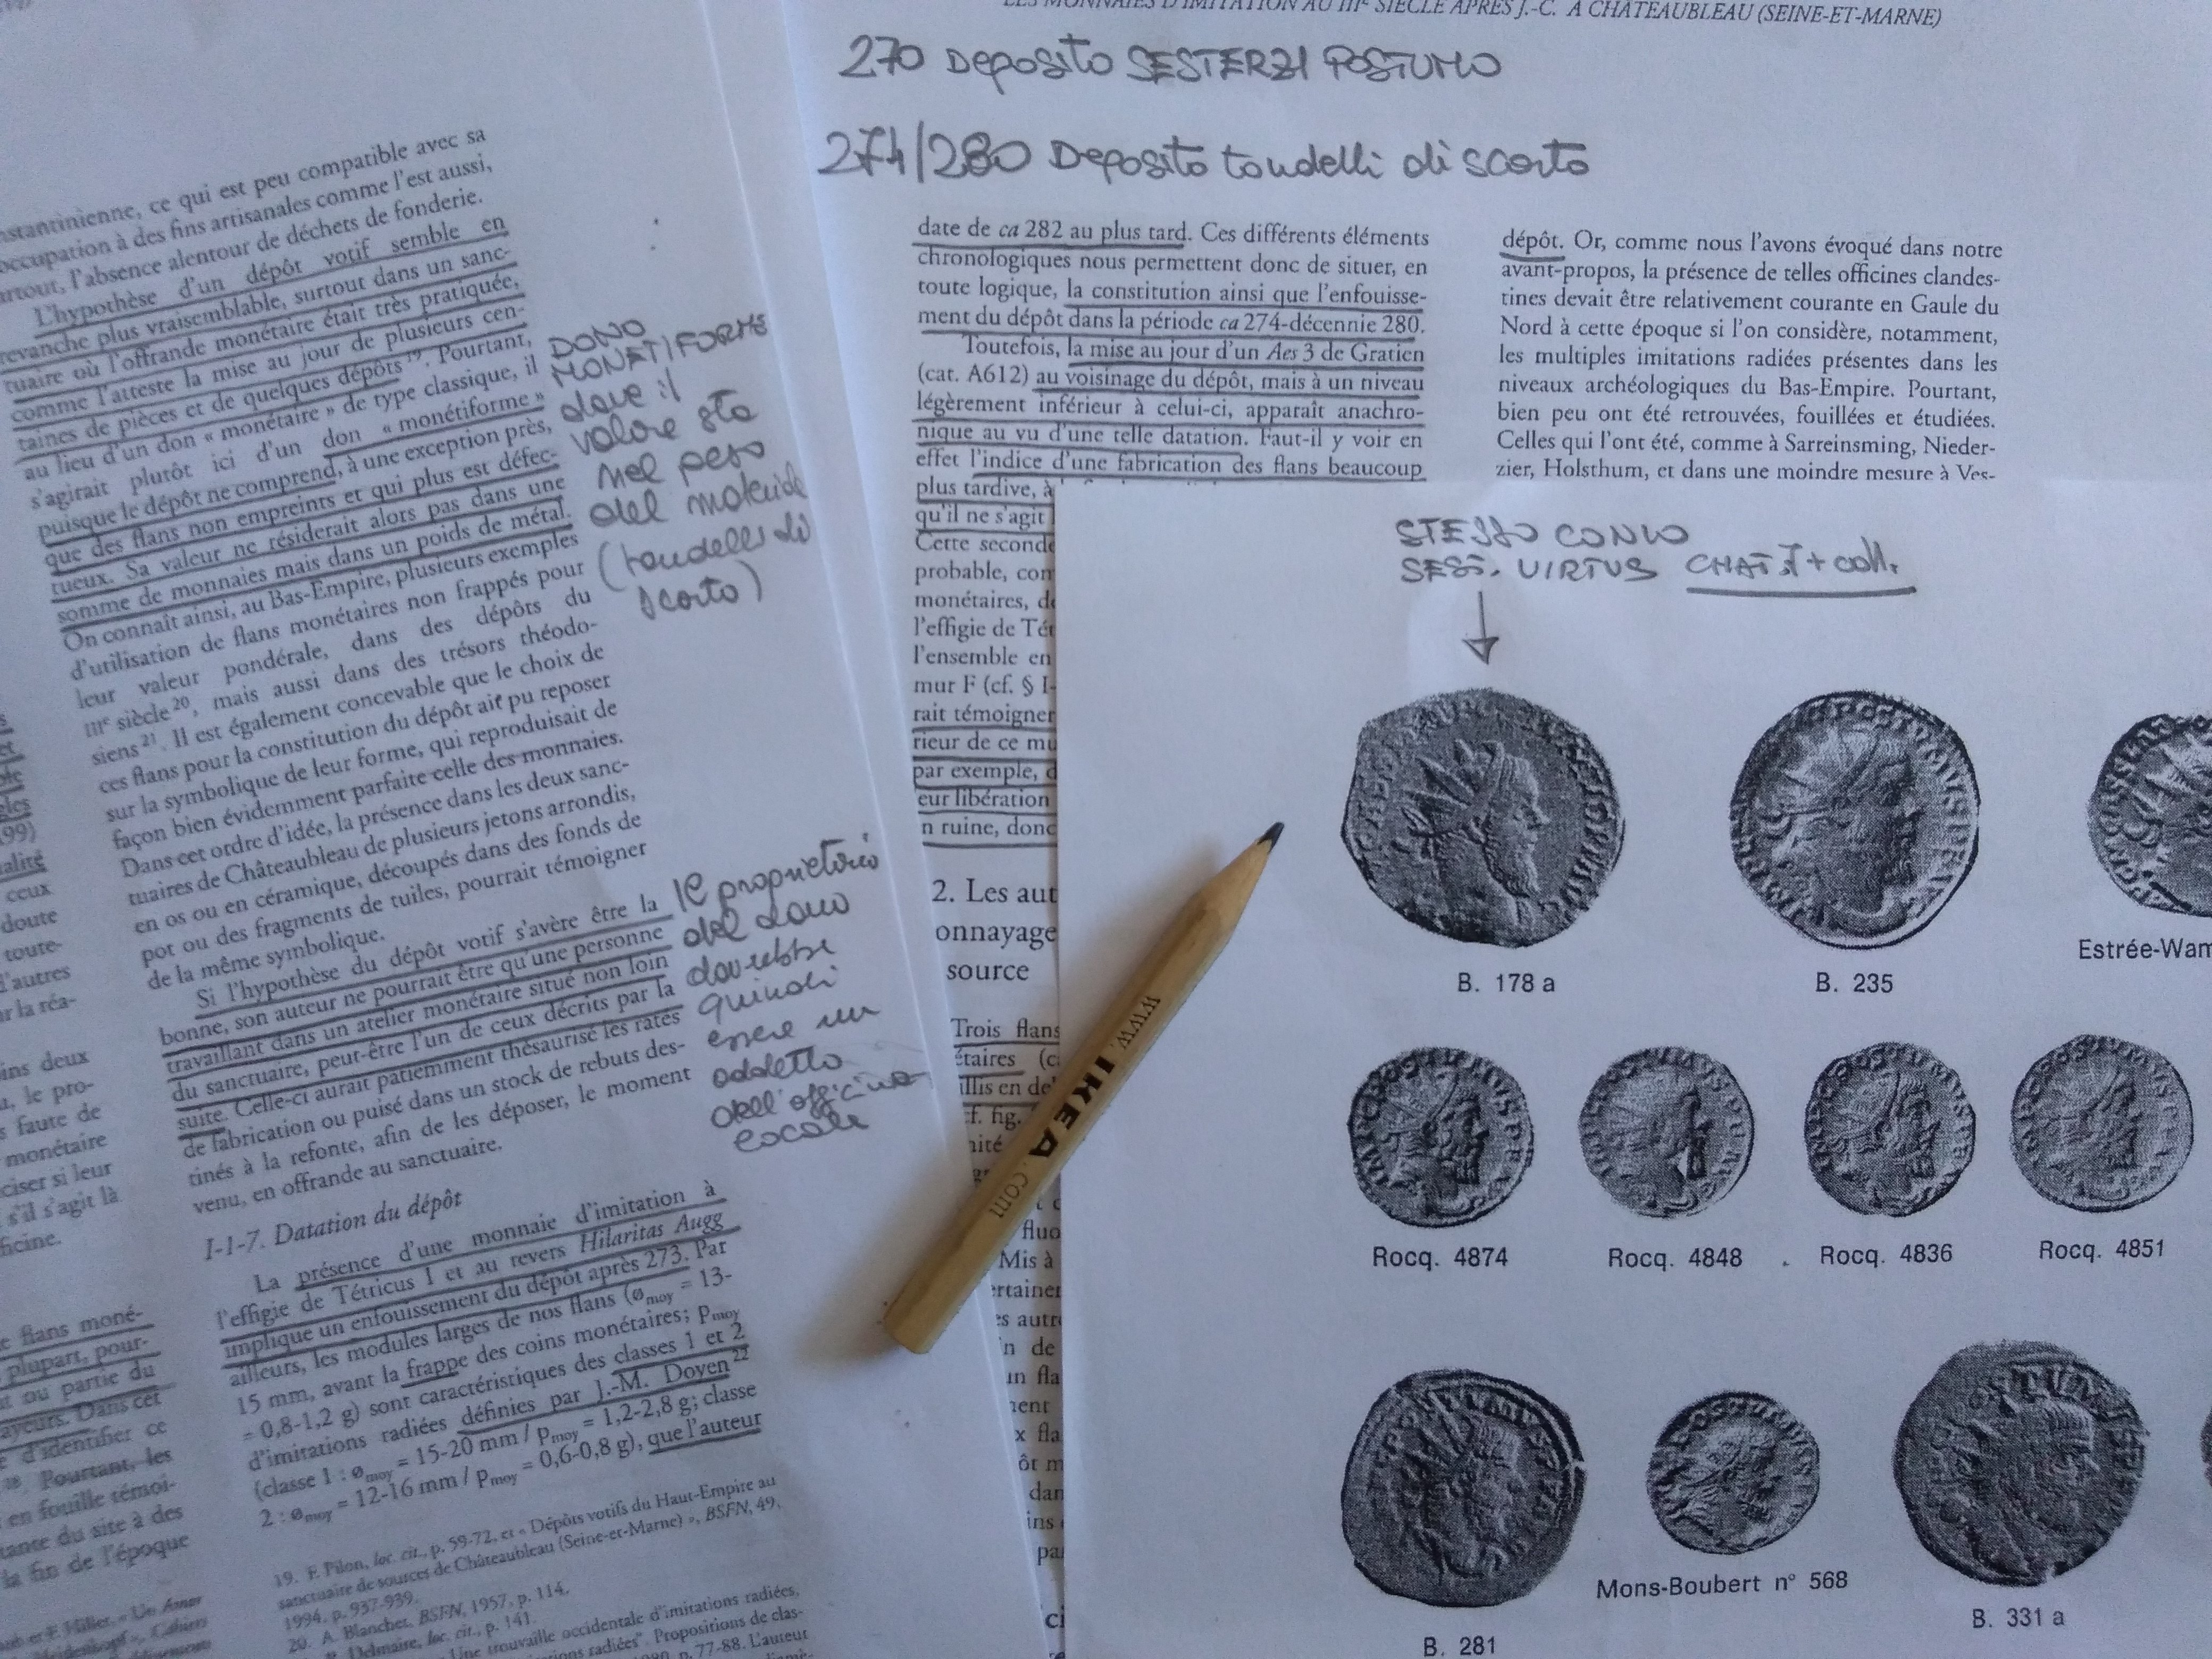 LES MONNAIES D'IMITATION AU IIIe SIÈCLE APRÈS J.-C. À CHÂTEAUBLEAU (SEINE-ET-MARNE)
270 Deposito SESTERZI POSTUMO
274/280 Deposito tondelli di scarto
nstantinienne, ce qui est peu compatible avec sa
occupation à des fins artisanales comme l'est aussi,
artout, l'absence alentour de déchets de fonderie.
L'hypothèse d'un dépôt votif semble en
revanche plus vraisemblable, surtout dans un sanc-
tuaire où l'offrande monétaire était très pratiquée,
comme l'atteste la mise au jour de plusieurs cen-
taines de pièces et de quelques dépôts 19. Pourtant,
au lieu d'un don « monétaire » de type classique, il
s'agirait plutôt ici d'un don « monétiforme »
puisque le dépôt ne comprend, à une exception près,
que des flans non empreints et qui plus est défec-
tueux. Sa valeur ne résiderait alors pas dans une
somme de monnaies mais dans un poids de métal.
On connaît ainsi, au Bas-Empire, plusieurs exemples
d'utilisation de flans monétaires non frappés pour
leur valeur pondérale, dans des dépôts du
IIIe siècle 20, mais aussi dans des trésors théodo-
siens 21. Il est également concevable que le choix de
ces flans pour la constitution du dépôt ait pu reposer
sur la symbolique de leur forme, qui reproduisait de
façon bien évidemment parfaite celle des monnaies.
Dans cet ordre d'idée, la présence dans les deux sanc-
tuaires de Châteaubleau de plusieurs jetons arrondis,
en os ou en céramique, découpés dans des fonds de
pot ou des fragments de tuiles, pourrait témoigner
de la même symbolique.
Si l'hypothèse du dépôt votif s'avère être la
bonne, son auteur ne pourrait être qu'une personne
travaillant dans un atelier monétaire situé non loin
du sanctuaire, peut-être l'un de ceux décrits par la
suite. Celle-ci aurait patiemment thésaurisé les ratés
de fabrication ou puisé dans un stock de rebuts des-
tinés à la refonte, afin de les déposer, le moment
venu, en offrande au sanctuaire.
I-1-7. Datation du dépôt
La présence d'une monnaie d'imitation à
l'effigie de Tétricus I et au revers Hilaritas Augg
implique un enfouissement du dépôt après 273. Par
ailleurs, les modules larges de nos flans (ø moy = 13-
15 mm, avant la frappe des coins monétaires; p moy
= 0,8-1,2 g) sont caractéristiques des classes 1 et 2
d'imitations radiées définies par J.-M. Doyen 22
(classe 1 : ø moy = 15-20 mm / p moy = 1,2-2,8 g; classe
2 : ø moy = 12-16 mm / p moy = 0,6-0,8 g), que l'auteur
19. F. Pilon, loc. cit., p. 59-72, et « Dépôts votifs du Haut-Empire au
sanctuaire de sources de Châteaubleau (Seine-et-Marne) », BSFN, 49,
1994, p. 937-939.
20. A. Blanchet, BSFN, 1957, p. 114.
Delmaire, loc. cit., p. 141.
Une trouvaille occidentale d'imitations radiées,
radiées". Propositions de clas-
p. 77-88. L'auteur
DONO
MONETIFORME
dove il
valore sta
nel peso
del materiale
(tondelli di
scarto)
Il proprietario
del dono
dovrebbe
quindi
essere un
addetto
dell'officina
locale
99)
alité
ceux
doute
toute-
d'autres
r la réa-
ins deux
, le pro-
faute de
monétaire
ciser si leur
s'il s'agit là
ficine.
e flans moné-
plupart, pour-
t ou partie du
ayeurs. Dans cet
d'identifier ce
Pourtant, les
en fouille témoi-
tante du site à des
la fin de l'époque
date de ca 282 au plus tard. Ces différents éléments
chronologiques nous permettent donc de situer, en
toute logique, la constitution ainsi que l'enfouisse-
ment du dépôt dans la période ca 274-décennie 280.
Toutefois, la mise au jour d'un Aes 3 de Gratien
(cat. A612) au voisinage du dépôt, mais à un niveau
légèrement inférieur à celui-ci, apparaît anachro-
nique au vu d'une telle datation. Faut-il y voir en
effet l'indice d'une fabrication des flans beaucoup
plus tardive, à
qu'il ne s'agit
Cette seconde
probable, con
monétaires, de
l'effigie de Tét
l'ensemble en
mur F (cf. § I-
rait témoigner
rieur de ce mu
par exemple, d
eur libération
n ruine, donc
2. Les aut
onnayage
source
Trois flans
étaires (c
illis en de
f. fig.
nité
fluo
Mis à
ertaine
s autre
n de
un fla
ment
x fla
ôt m
dan
ins
pa
dépôt. Or, comme nous l'avons évoqué dans notre
avant-propos, la présence de telles officines clandes-
tines devait être relativement courante en Gaule du
Nord à cette époque si l'on considère, notamment,
les multiples imitations radiées présentes dans les
niveaux archéologiques du Bas-Empire. Pourtant,
bien peu ont été retrouvées, fouillées et étudiées.
Celles qui l'ont été, comme à Sarreinsming, Nieder-
zier, Holsthum, et dans une moindre mesure à Ves-
STESSO CONIO
SEST. VIRTUS CHAT. I + coll.
B. 178 a
B. 235
Estrée-Wam
Rocq. 4874
Rocq. 4848
Rocq. 4836
Rocq. 4851
B. 281
Mons-Boubert n° 568
B. 331 a
www.IKEA.com